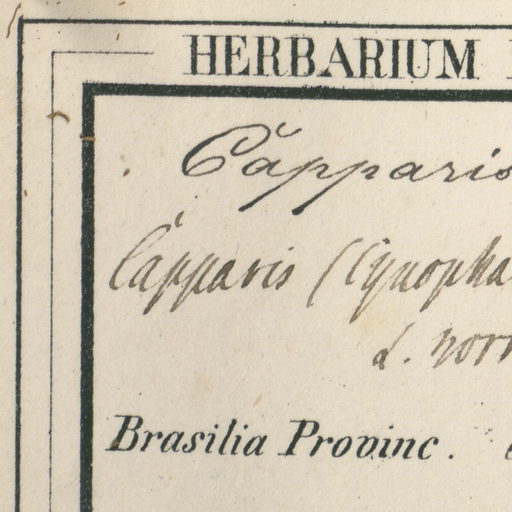 HERBARIUM
Capparis
Capparis (Cynopha
Brasilia Provinc.